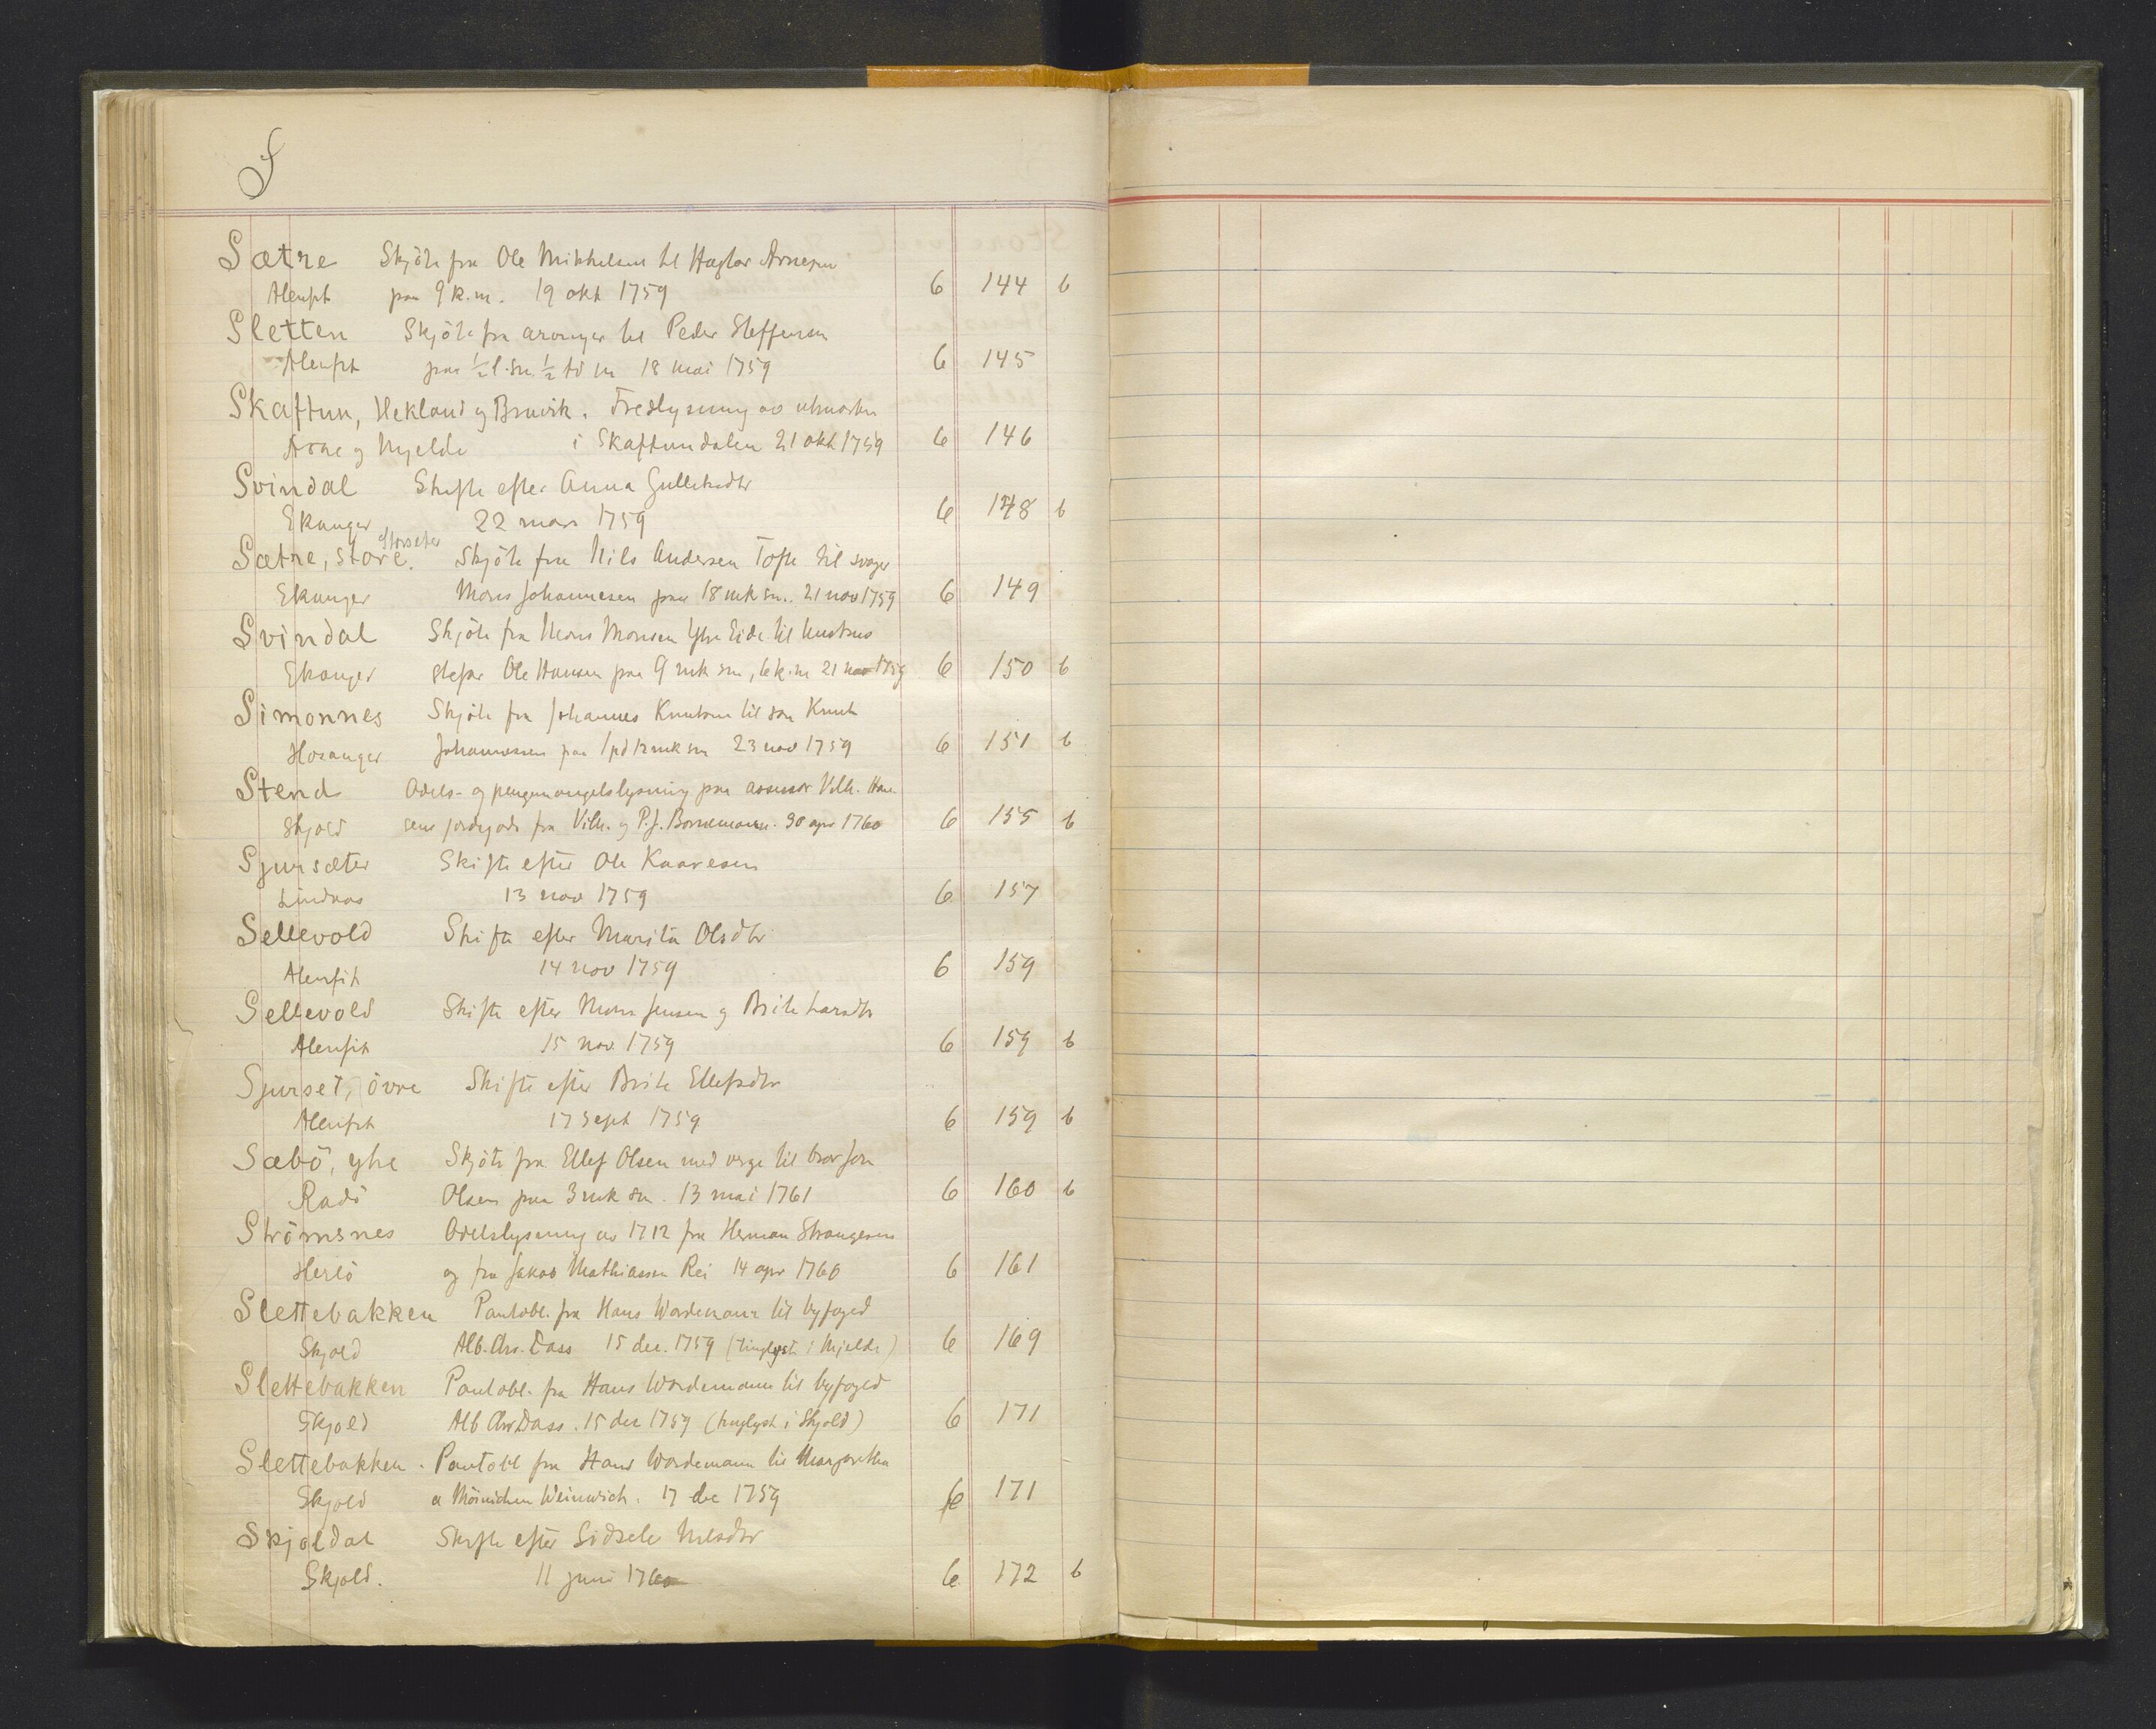 S
Sætre Skjöte fra Ole Mikkelsen til Haglor Arnesen
Alenfit paa 9 k.m. 19 okt 1759 6 144 b
Sletten Skjöte fra arvinger til Peder Steffensen
Alenfit paa ½ l. sm ½ td m 18 mai 1759 6 145
Skaftun, Hekland og Bruvik. Fredlysning av utmarken
Arne og Mjelde i Skaftundalen 21 okt 1759 6 146
Svindal Skifte efter Anna Gulleksdtr
Ekanger 22 mars 1759 6 148 b
Storseter
Sætre, store. Skjöte fra Nils Andersen Tofte til svoger
Ekanger Mons Johannesen paa 18 mk sm. 21 nov 1759 6 149
Svindal Skjöte fra Mons Monsen Ytre Eide til hustrus
Ekanger stefar Ole Hansen paa 9 mk sm, 6 k.m 21 nov 1759 6 150 b
Simonnes Skjöte fra Johannes Knutsen til son Knut
Hosanger Johannessen paa 1 pd 12 mk sm 23 nov 1759 6 151 b
Stend Odels- og pengemangelslysning paa assessor Vilh. Han-
Skjold sens jordegods fra Vilh. og P.J. Bornemann. 30 apr 1760 6 155 b
Sjursæter Skifte efter Ole Kaaresen
Lindaas 13 nov 1759 6 157
Sellevold Skifte efter Marita Olsdtr
Alenfit 14 nov 1759 6 159
Sellevold Skifte efter Mons Jensen og Brite Larsdtr
Alenfit 15 nov. 1759 6 159 b
Sjurset, övre Skifte efter Brite Ellefsdtr
Alenfit 17 sept 1759 6 159 b
Sæbö, ytre Skjöte fra Ellef Olsen med verge til bror Jon
Radö Olsen paa 3 mk sm. 13 mai 1761 6 160 b
Strömsnes Odelslysning av 1712 fra Herman Strangesen
Herlö og fra Jakob Mathiassen Rei 14 apr 1760 6 161
Slettebakken Pantobl. fra Hans Wardemann til byfoged
Skjold Alb. Chr. Dass 15 dec. 1759 (tinglyst i Mjelde) 6 169
Slettebakken Pantobl. fra Hans Wardemann til byfoged
Skjold Alb Chr. Dass. 15 dec 1759 (tinglyst i Skjold) 6 171
Slettebakken. Pantobl fra Hans Wardemann til Margaretha
Skjold a Möinichen Weinwich. 17 dec 1759 6 171
Skjoldal Skifte efter Sidsele Nilsdtr
Skjold. 11 juni 1760 6 172 b